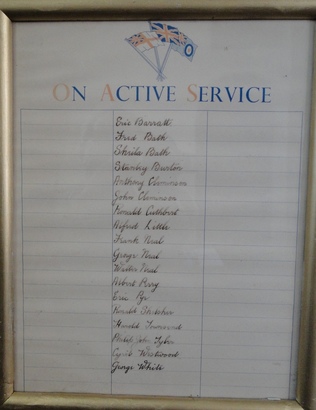 ON ACTIVE SERVICE
Eric Barratt
Fred Bath
Sheila Bath
Stanley Burton
Anthony
John
Ronald Cuthbert
Alfred Little
Frank Neal
George Neal
Walter Neal
Albert Perry
Eric Pye
Harold Townsend
Philip John Tyler
Cyril Westwood
George White